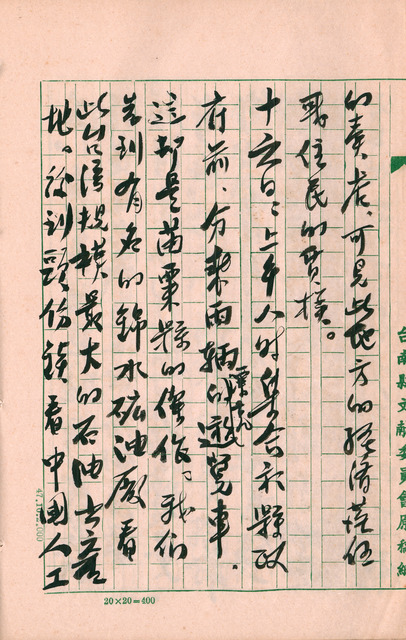 台南縣文献委員會原稿紙
的賣店、可見此地方的經濟落伍
與住民的質樸。
十六日、上午八時集合於縣政
府前、分乘兩輛的遊覽車。
這都是苗栗縣的傑作。我們
先到有名的錦水礦油廠看
此台湾規模最大的石油生產
地。後到頭份鎮看中國人工
20×20=400